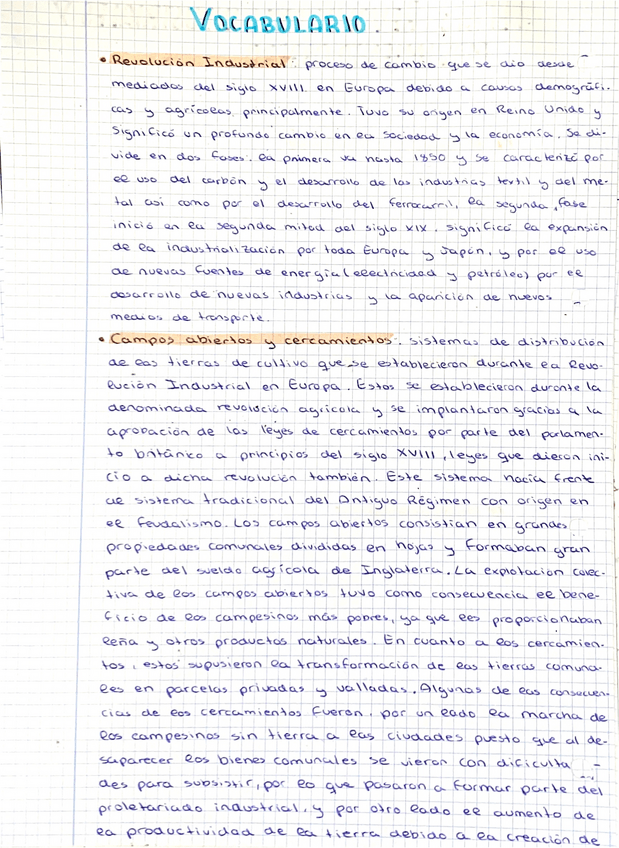 VOCABULARIO.
• Revolución Industrial: proceso de cambio que se dio desde
mediados del siglo XVIII en Europa debido a causas demográfi-
cas y agrícolas principalmente. Tuvo su origen en Reino Unido y
significó un profundo cambio en la sociedad y la economía. Se di-
vide en dos fases: la primera va hasta 1850 y se caracterizó por
el uso del carbón y el desarrollo de las industrias textil y del me-
tal así como por el desarrollo del ferrocarril, la segunda fase
inició en la segunda mitad del siglo XIX, significó la expansión
de la industrialización por toda Europa y Japón, y por el uso
de nuevas fuentes de energía (electricidad y petróleo) por el
desarrollo de nuevas industrias y la aparición de nuevos
medios de transporte.
• Campos abiertos y cercamientos: sistemas de distribución
de las tierras de cultivo que se establecieron durante la Revo-
lución Industrial en Europa. Estos se establecieron durante la
denominada revolución agrícola y se implantaron gracias a la
aprobación de las leyes de cercamientos por parte del parlamen-
to británico a principios del siglo XVIII, leyes que dieron ini-
cio a dicha revolución también. Este sistema hacía frente
al sistema tradicional del Antiguo Régimen con origen en
el feudalismo. Los campos abiertos consistían en grandes
propiedades comunales divididas en hojas y formaban gran
parte del sueldo agrícola de Inglaterra. La explotación colec-
tiva de los campos abiertos tuvo como consecuencia el bene-
ficio de los campesinos más pobres, ya que les proporcionaban
leña y otros productos naturales. En cuanto a los cercamien-
tos, estos supusieron la transformación de las tierras comuna-
les en parcelas privadas y valladas. Algunas de las consecuen-
cias de los cercamientos fueron, por un lado la marcha de
los campesinos sin tierra a las ciudades puesto que al de-
saparecer los bienes comunales se vieron con dificulta
des para subsistir, por lo que pasaron a formar parte del
proletariado industrial, y por otro lado el aumento de
la productividad de la tierra debido a la creación de